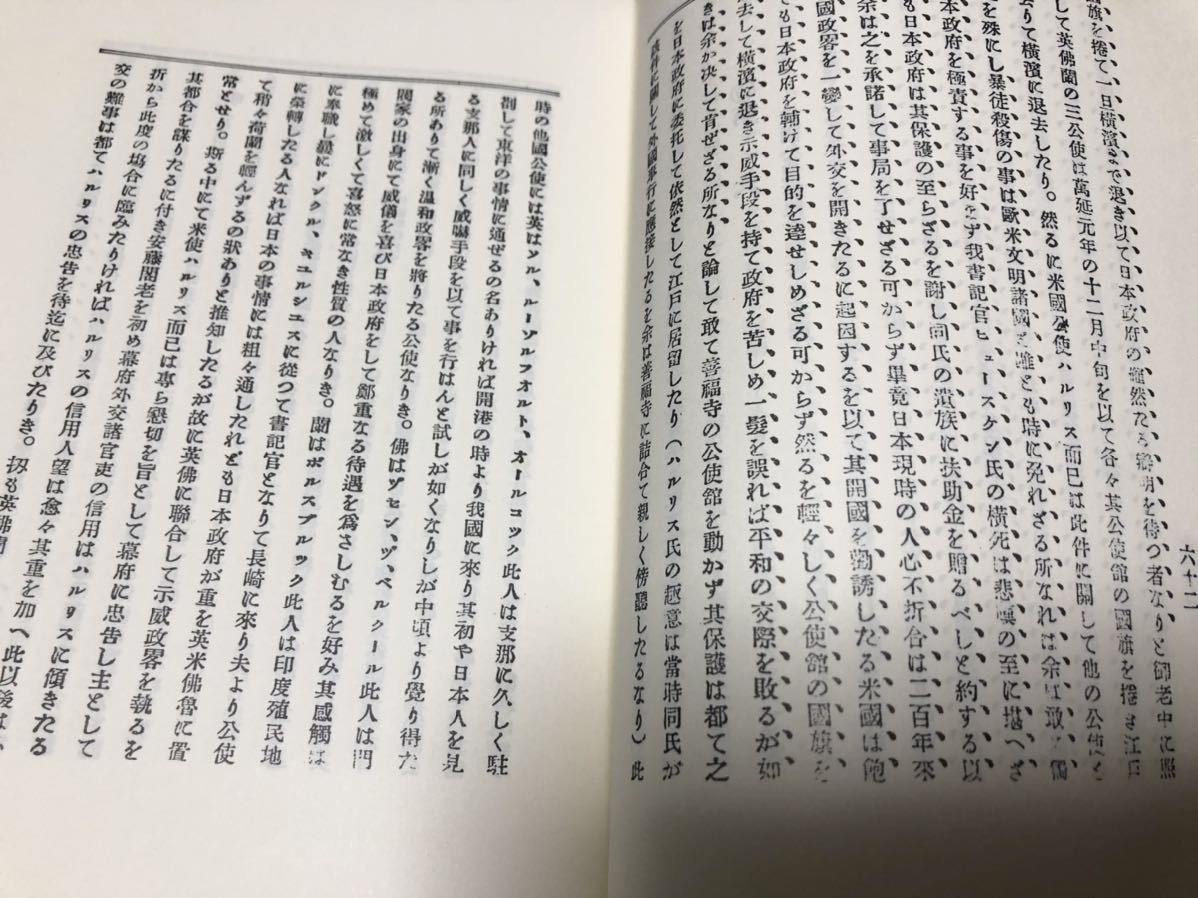 六十二
國旗を捲て一旦橫濱まで退き以て日本政府の
たる辯明を待つ者なりと御老中に照
して英佛蘭の三公使は萬延元年の十二月中旬を以て各々其公使館の國旗を捲き江戶
去りて橫濱に退去したり。然るに米國公使ハルリス而已は此件に關して他の公使と
を殊にし暴徒殺傷の事は歐米文明諸國と雖とも時に免れざる所なれは余は敢て獨
本政府を極責する事を好まず我書記官ヒュースケン氏の橫死は悲嘆の至に堪へざ
も日本政府は其保護の至らざるを謝し同氏の遺族に扶助金を贈るべしと約する以
余は之を承諾して事局を了せざる可からず畢竟日本現時の人心不折合は二百年來
國政畧を一變して外交を開きたるに起因するを以て其開國を勸誘したる米國は飽
ても日本政府を輔けて目的を達せしめざる可からず然るを輕々しく公使館の國旗を
去して橫濱に退き示威手段を持て政府を苦しめ一髮を誤れば平和の交際を敗るが如
きは余か决して肯ぜざる所なりと論して敢て善福寺の公使館を動かず其保護は都て之
を日本政府に委托して依然として江戶に居留したり(ハルリス氏の趣意は當時同氏が
該件に關して外國奉行に應接したるを余は善福寺に詰合て親しく傍聽したるなり)此
時の他國公使には英はソル、ルーゾルフォルト、オールコック此人は支那に久しく駐
剳して東洋の事情に通ぜるの名ありければ開港の時より我國に來り其初や日本人を見
る支那人に同しく威嚇手段を以て事を行はんと試しが如くなりしが中頃より覺り得た
る所ありて漸く温和政畧を將りたる公使なりき。佛はヅセン、ヅ、ベルクール此人は門
閥家の出身にて威儀を喜び日本政府をして鄭重なる待遇を爲さしむるを好み其感觸は
極めて激しくて喜怒に常なき性質の人なりき。蘭はポルスブルック此人は印度殖民地
に奉職し曩にドンクル、キユルシユスに從つて書記官となりて長崎に來り夫より公使
に榮轉したる人なれば日本の事情には粗々通したれども日本政府が重を英米佛魯に置
て稍々荷蘭を輕んずるの狀ありと推知したるが故に英佛に聯合して示威政畧を執るを
常とせり。斯る中にて米使ハルリス而已は專ら懇切を旨として幕府に忠告し主として
其都合を謀りたるに付き安藤閣老を初め幕府外交諸官吏の信用はハルリスに傾きたる
折から此度の塲合に臨みたりければハルリスの信用人望は愈々其重を加へ此以後は
交の難事は都てハルリスの忠告を待迄に及びたりき。 扨も英佛